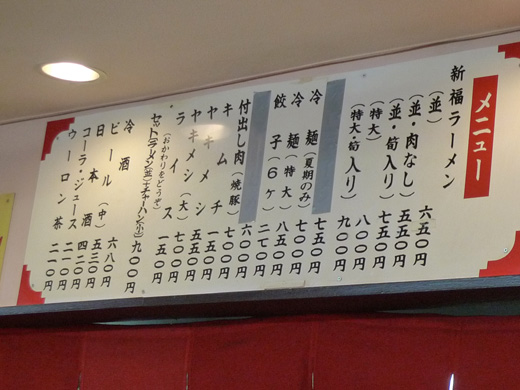 メニュー
新福ラーメン
(並) 六五〇円
(並・肉なし) 五五〇円
(並・筍入り) 七五〇円
(特大) 八〇〇円
(特大・筍入り) 九〇〇円
冷麺(夏期のみ) 七五〇円
冷麺(特大) 八五〇円
餃子(6ケ) 二七〇円
付出し肉(焼豚) 六〇〇円
キムチ 一五〇円
ヤキメシ 五五〇円
ヤキメシ(大) 七〇〇円
ライス 一五〇円
(おかわりをどうぞ)
セット(ラーメン(並)+チャーハン(小)) 九〇〇円
冷酒 六八〇円
ビール(中) 五三〇円
日本酒 四二〇円
コーラ・ジュース 二一〇円
ウーロン茶 二一〇円